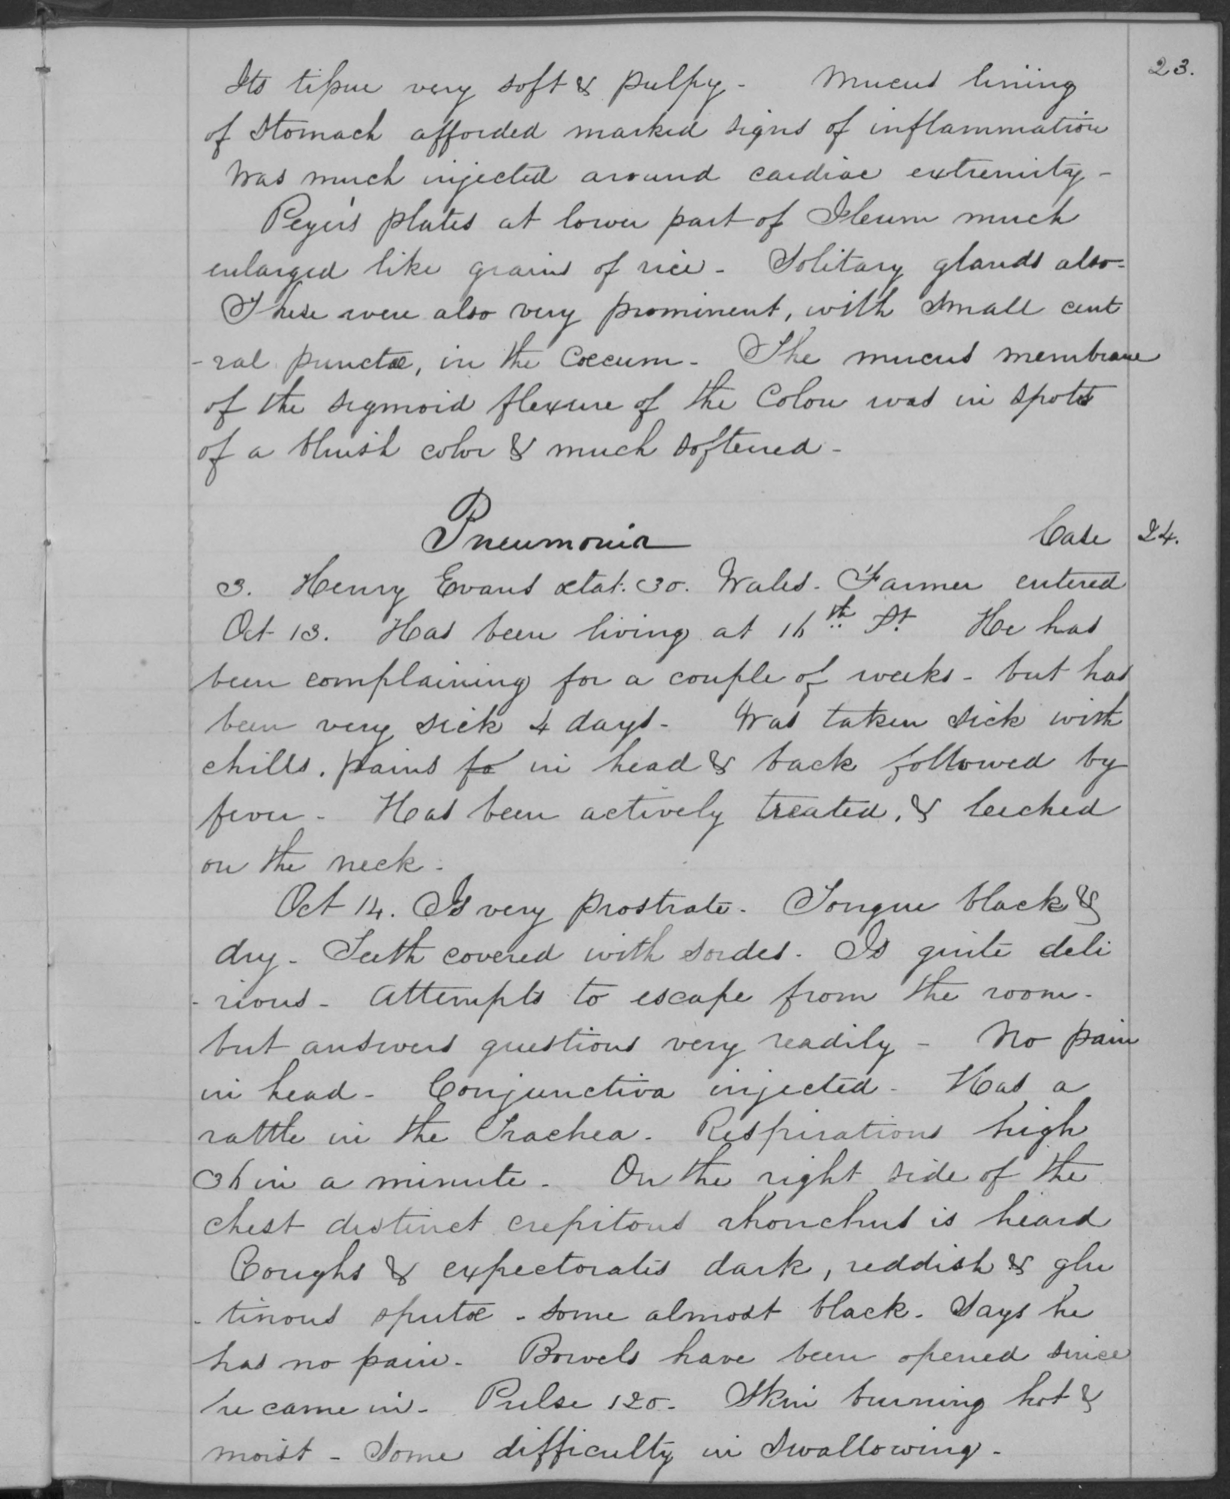 23.
Its tissue very soft & pulpy - Mucus lining
of Stomach afforded marked signs of inflammation
Was much injected around cardiac extremity -
Peyer's plates at lower part of Ileum much
enlarged like grains of rice - Solitary glands also -
These were also very prominent, with small cent
-ral punctæ, in the Cœcum - The mucus membrane
of the sigmoid flexure of the Colon was in spots
of a bluish color & much softened -
Pneumonia Case 24.
3. Henry Evans ætat: 30. Wales - Farmer entered
Oct 13. Has been living at 16th St. He has
been complaining for a couple of weeks - but has
been very sick 4 days - Was taken sick with
chills, pains fo in head & back followed by
fever - Has been actively treated, & leeched
on the neck -
Oct 14. Is very prostrate - Tongue black &
dry - Teeth covered with sordes - Is quite deli
-rious - Attempts to escape from the room -
but answers questions very readily - No pain
in head - Conjunctiva injected - Has a
rattle in the Trachea - Respirations high
36 in a minute - On the right side of the
chest distinct crepitous rhonchus is heard
Coughs & expectorates dark, reddish & glu
-tinous sputæ - some almost black - Says he
has no pain - Bowels have been opened since
he came in - Pulse 120 - Skin burning hot &
moist - Some difficulty in swallowing -